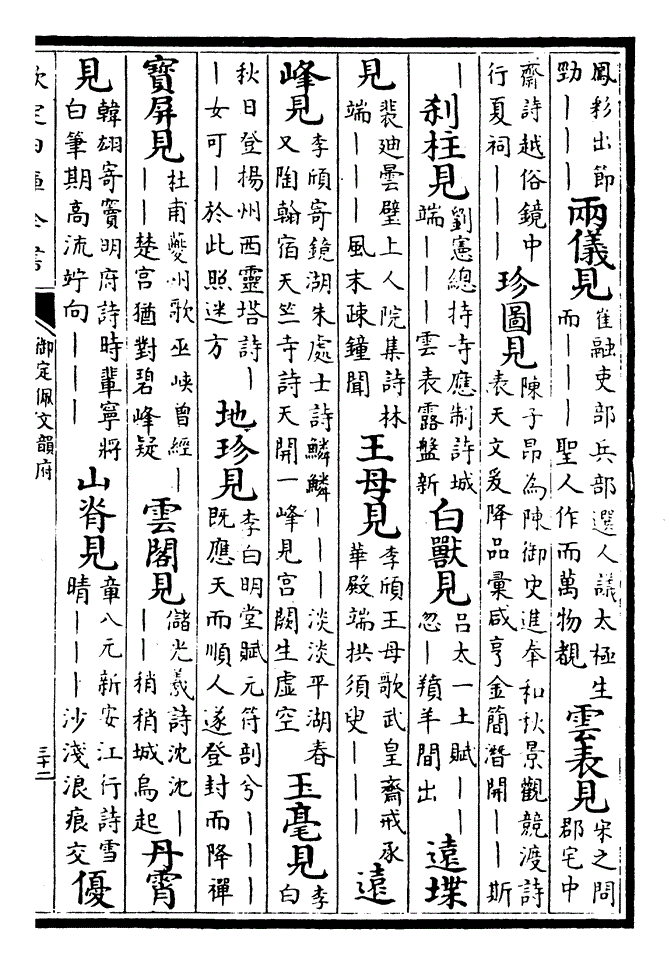 鳳彩出節勁｜｜｜兩儀見崔融吏部兵部選人議太極生而｜｜｜聖人作而萬物覩雲表見宋之問郡宅中
齋詩越俗鏡中行夏祠｜｜｜珍圖見陳子昂為陳御史進奉和秋景觀競渡詩表天文爰降品彙咸亨金簡潛開｜｜斯
｜刹柱見劉憲總持寺應制詩城端｜｜｜雲表露盤新白獸見吕太一土賦｜｜忽｜羵羊間出遠堞
見裴廸曇壁上人院集詩林端｜｜｜風末疎鐘聞王母見李頎王母歌武皇齋戒承華殿端拱須臾｜｜｜遠
峰見李頎寄鏡湖朱處士詩鱗鱗｜｜｜淡淡平湖春又陶翰宿天竺寺詩天開一峰見宮闕生虚空玉毫見李白
秋日登揚州西靈塔詩｜｜女可｜於此照迷方地珍見李白明堂賦元符剖兮｜｜｜既應天而順人遂登封而降禪
寶屏見杜甫夔州歌巫峽曾經｜｜｜楚宮猶對碧峰疑雲閣見儲光羲詩沈沈｜｜｜稍稍城烏起丹霄
見韓翃寄竇明府詩時輩寧將白筆期高流竚向｜｜｜山脊見章八元新安江行詩雪晴｜｜｜沙淺浪痕交優
欽定四庫全書
御定佩文韻府
三十二